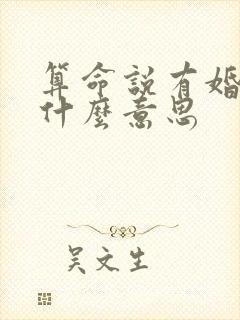 算命說有婚
什麼意思
吳文生